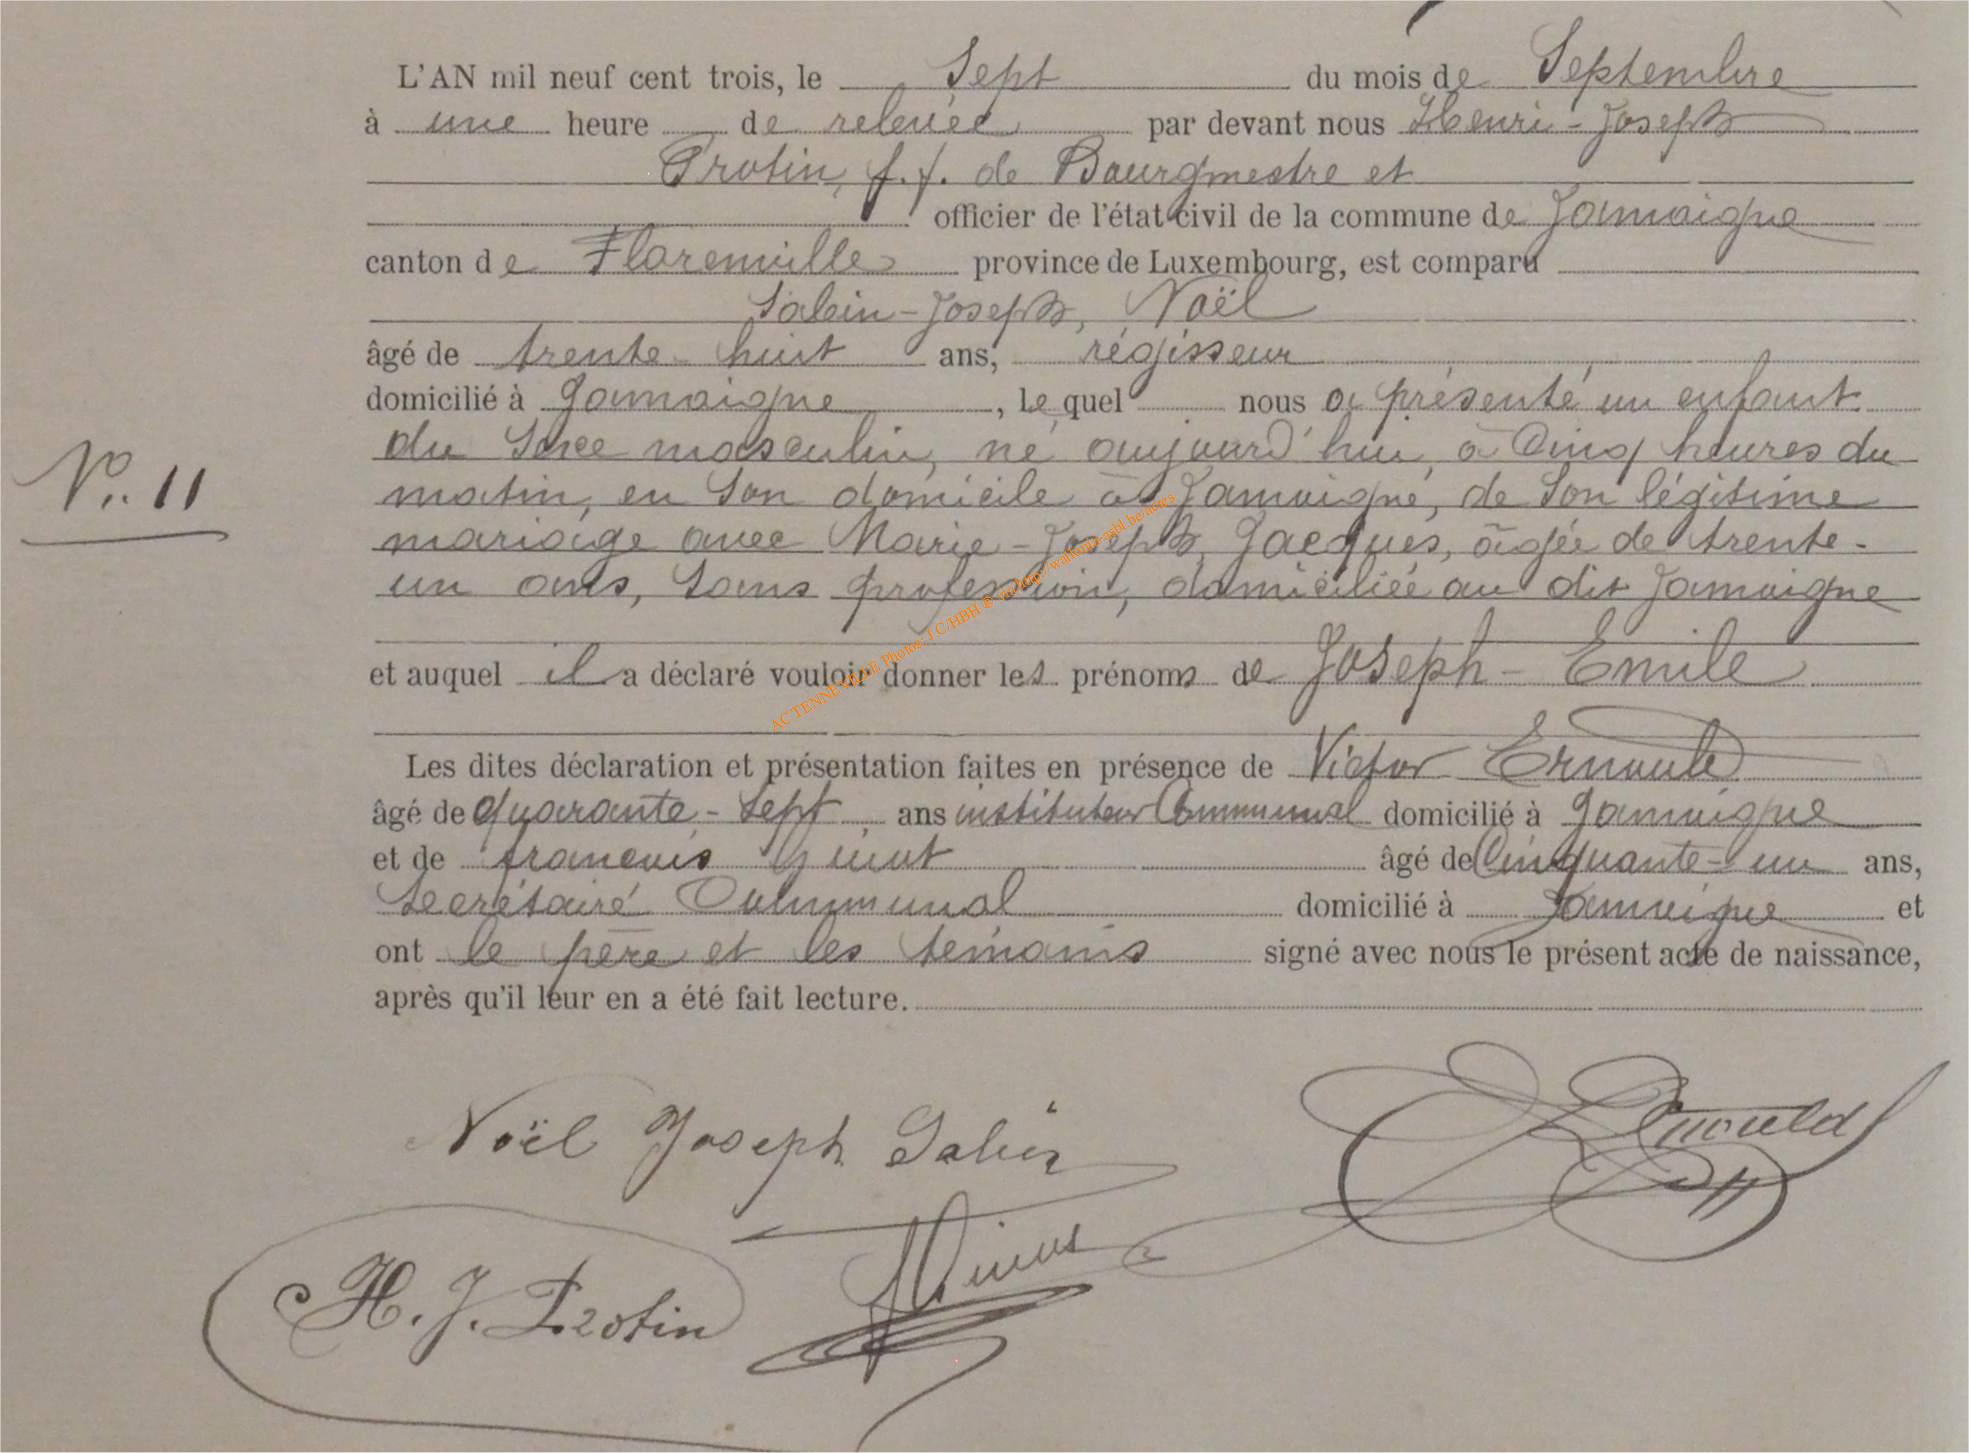 L'AN mil neuf cent trois, le Sept du mois de Septembre
à une heure de relevée par devant nous Henri-Joseph
Protin, f.f. de Bourgmestre et
officier de l'état civil de la commune de Jamoigne
canton de Florenville province de Luxembourg, est comparu
Sabin-Joseph, Noël
âgé de trente-huit ans, régisseur
domicilié à Jamoigne, le quel nous a présenté un enfant
du Sexe masculin, né aujourd'hui, à Cinq heures du
N°. 11
matin, en Son domicile à Jamoigne, de Son légitime
mariage avec Marie-Joseph, Jacques, âgée de trente-
un ans, Sans profession, domiciliée au dit Jamoigne
et auquel il a déclaré vouloir donner les prénoms de Joseph-Emile
Les dites déclaration et présentation faites en présence de Victor Ernould
âgé de quarante-Sept ans instituteur Communal domicilié à Jamoigne
et de françois âgé de Cinquante-un ans,
Secrétaire Communal domicilié à Jamoigne et
ont le père et les témoins signé avec nous le présent acte de naissance,
après qu'il leur en a été fait lecture.
Noël Joseph Sabin
Ernould
H. J. Protin
ACTENNEVILLE Photos: J.C/HBH © via http://wallonia-asbl.be/actes